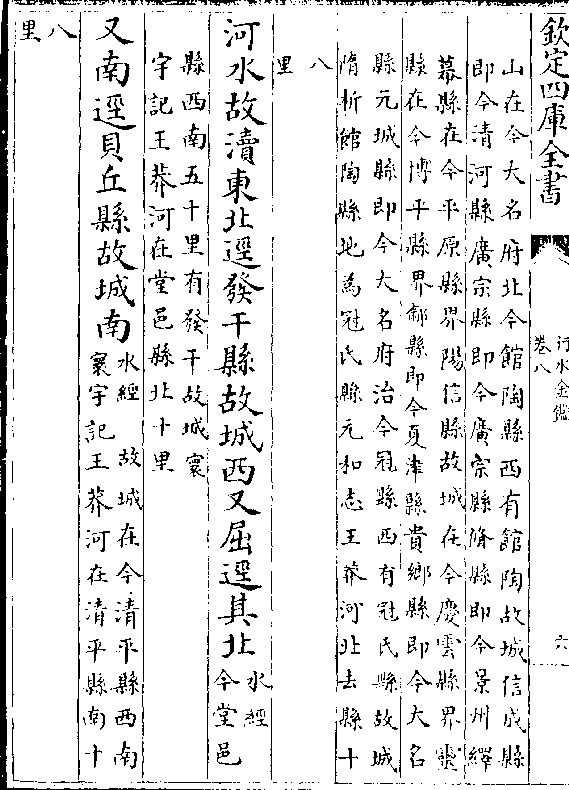 欽定四庫全書
行水金鑑
卷八
六
山在今大名府北今館陶縣西有館陶故城信成縣
即今清河縣廣宗縣即今廣宗縣脩縣即今景州繹
幕縣在今平原縣界陽信縣故城在今慶雲縣界靈
縣在今博平縣界鄃縣即今夏津縣貴鄉縣即今大名
縣元城縣即今大名府治今冠縣西有冠氏縣故城
隋析館陶縣地為冠氏縣元和志王莽河北去縣十
八里
河水故瀆東北逕發干縣故城西又屈逕其北水經今堂邑
縣西南五十里有發干故城寰
宇記王莽河在堂邑縣北十里
又南逕貝丘縣故城南水經故城在今清平縣西南
寰宇記王莽河在清平縣南十
八里